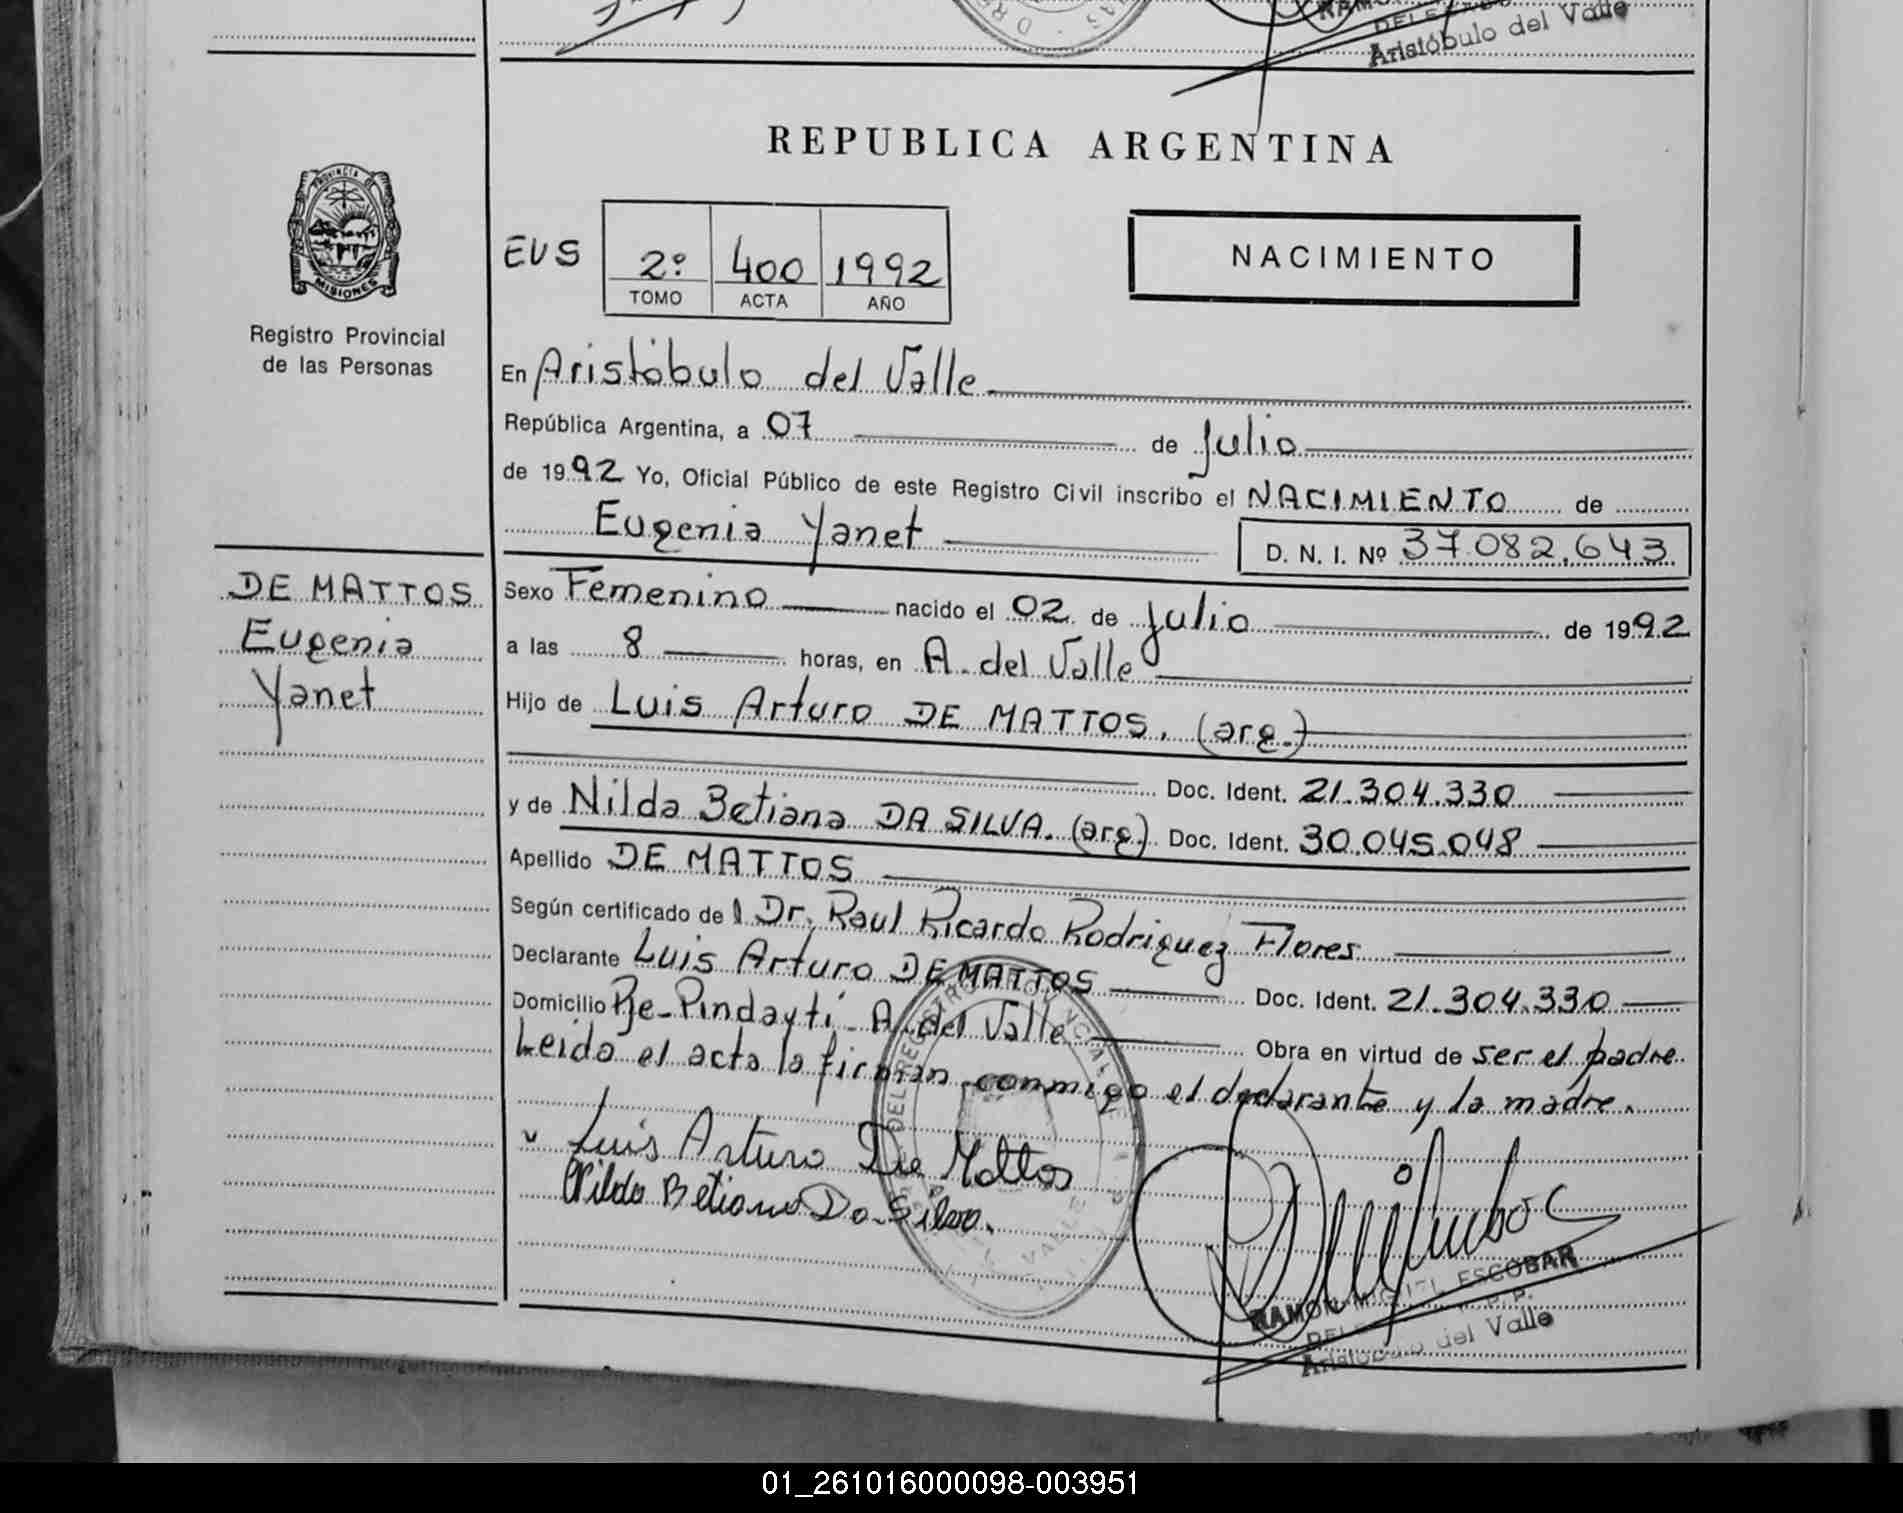 Aristóbulo del Valle
REPUBLICA ARGENTINA
PROVINCIA DE
MISIONES
Registro Provincial
de las Personas
EUS 2º 400 1992
TOMO ACTA AÑO
NACIMIENTO
En Aristóbulo del Valle
República Argentina, a 07 de Julio
de 1992 Yo, Oficial Público de este Registro Civil inscribo el NACIMIENTO de
Eugenia Yanet D. N. I. Nº 37.082.643
DE MATTOS
Eugenia
Yanet
Sexo Femenino nacido el 02 de Julio de 1992
a las 8 horas, en A. del Valle
Hijo de Luis Arturo DE MATTOS. (arg.)
Doc. Ident. 21.304.330
y de Nilda Betiana DA SILVA. (arg.) Doc. Ident. 30.045.048
Apellido DE MATTOS
Según certificado del Dr. Raul Ricardo Rodriguez Flores
Declarante Luis Arturo DE MATTOS Doc. Ident. 21.304.330
Domicilio Pje-Pindaytí-A. del Valle Obra en virtud de ser el padre.
Leida el acta la firman conmigo el declarante y la madre.
Luis Arturo De Mattos
Nilda Betiana Da Silva.
RAMON MIGUEL ESCOBAR
Aristóbulo del Valle
01_261016000098-003951